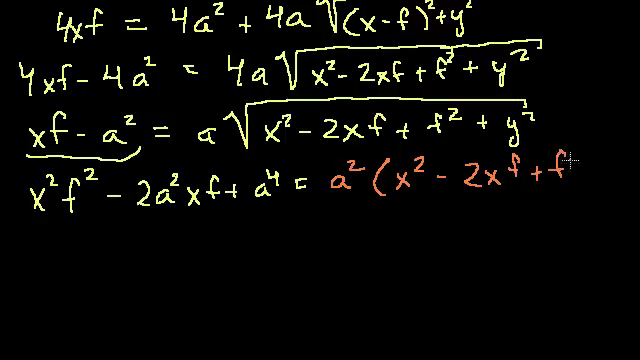 4xf = 4a² + 4a √(x-f)² + y²
4xf - 4a² = 4a √x² - 2xf + f² + y²
xf - a² = a √x² - 2xf + f² + y²
x²f² - 2a²xf + a⁴ = a² (x² - 2xf + f